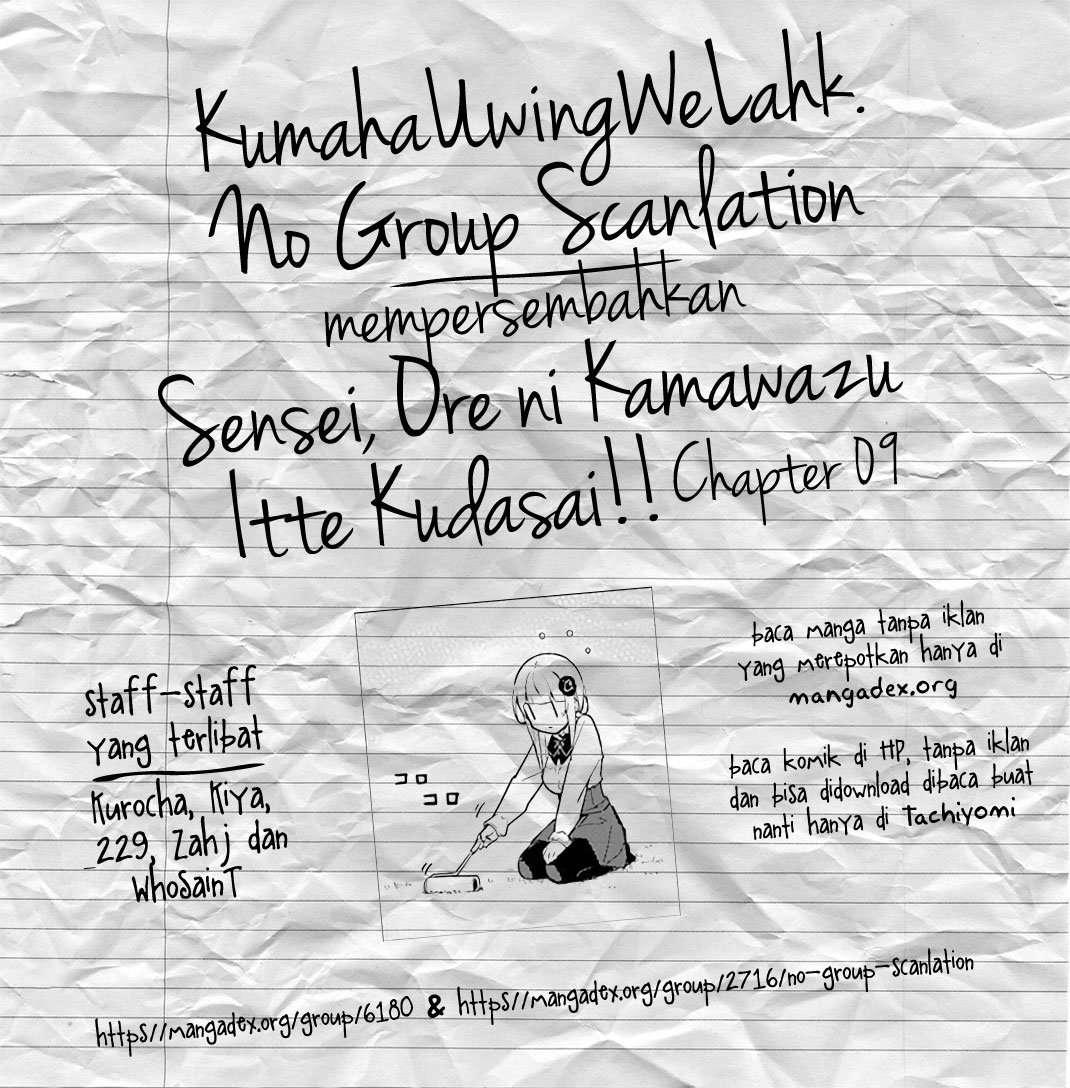 KumahaUwingWeLahk.
No Group Scanlation
mempersembahkan
Sensei, Ore ni Kamawazu
Itte Kudasai!! Chapter 09
staff-staff
yang terlibat
Kurocha, Kiya,
229, Zahj dan
WhoSainT
コロ
コロ
baca manga tanpa iklan
yang merepotkan hanya di
mangadex.org
baca komik di HP, tanpa iklan
dan bisa didownload dibaca buat
nanti hanya di Tachiyomi
https//mangadex.org/group/6180 & https//mangadex.org/group/2716/no-group-scanlation